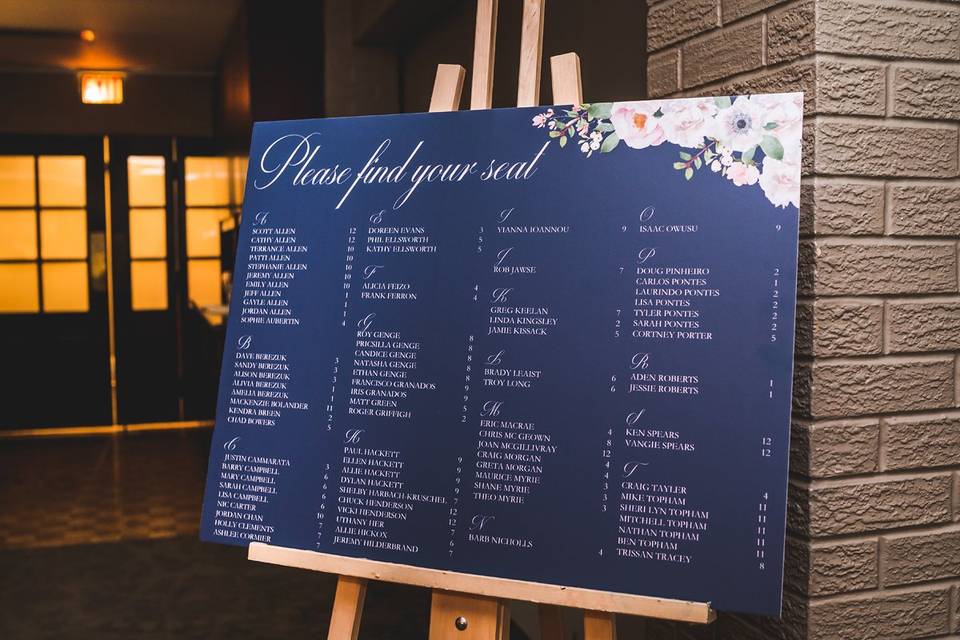 Please find your seat
A
SCOTT ALLEN 12
CATHY ALLEN 12
TERRANCE ALLEN 10
PATTI ALLEN 10
STEPHANIE ALLEN 10
JEREMY ALLEN 10
EMILY ALLEN
JEFF ALLEN 1
GAYLE ALLEN 1
JORDAN ALLEN 1
SOPHIE AUBERTIN 4
B
DAVE BEREZUK 3
SANDY BEREZUK 3
ALISON BEREZUK
ALIVIA BEREZUK 1
AMELIA BEREZUK 1
MACKENZIE BOLANDER 11
KENDRA BREEN 2
CHAD BOWERS 5
C
JUSTIN CAMMARATA 3
BARRY CAMPBELL 6
MARY CAMPBELL
SARAH CAMPBELL 6
LISA CAMPBELL 6
NIC CARTER 10
JORDAN CHAN 7
HOLLY CLEMENTS 7
ASHLEE CORMIER 7
E
DOREEN EVANS 3
PHIL ELLSWORTH 5
KATHY ELLSWORTH 5
F
ALICIA FEIZO 4
FRANK FERRON 4
G
ROY GENGE 8
PRICSILLA GENGE 8
CANDICE GENGE 8
NATASHA GENGE 8
ETHAN GENGE 8
FRANCISCO GRANADOS 9
IRIS GRANADOS 9
MATT GREEN 5
ROGER GRIFFIGH 2
H
PAUL HACKETT 9
ELLEN HACKETT 9
ALLIE HACKETT 9
DYLAN HACKETT 9
SHELBY HARBACH-KRUSCHEL 7
CHUCK HENDERSON 12
VICKI HENDERSON 12
UTHANY HER 6
ALLIE HICKOX 6
JEREMY HILDERBRAND 7
I
YIANNA IOANNOU 9
J
ROB JAWSE 7
K
GREG KEELAN 7
LINDA KINGSLEY 2
JAMIE KISSACK 5
L
BRADY LEAIST 6
TROY LONG 6
M
ERIC MACRAE 4
CHRIS MC GEOWN 8
JOAN MCGILLIVRAY 12
CRAIG MORGAN 4
GRETA MORGAN 4
MAURICE MYRIE 3
SHANE MYRIE 3
THEO MYRIE 3
N
BARB NICHOLLS 4
O
ISAAC OWUSU 9
P
DOUG PINHEIRO 2
CARLOS PONTES 1
LAURINDO PONTES 2
LISA PONTES 2
TYLER PONTES 2
SARAH PONTES 2
CORTNEY PORTER 2
R
ADEN ROBERTS 1
JESSIE ROBERTS 1
S
KEN SPEARS 12
VANGIE SPEARS 12
T
CRAIG TAYLER 4
MIKE TOPHAM 11
SHERI TOPHAM 11
MITCHELL TOPHAM 11
NATHAN TOPHAM 11
BEN TOPHAM 11
TRISSAN TRACEY 8